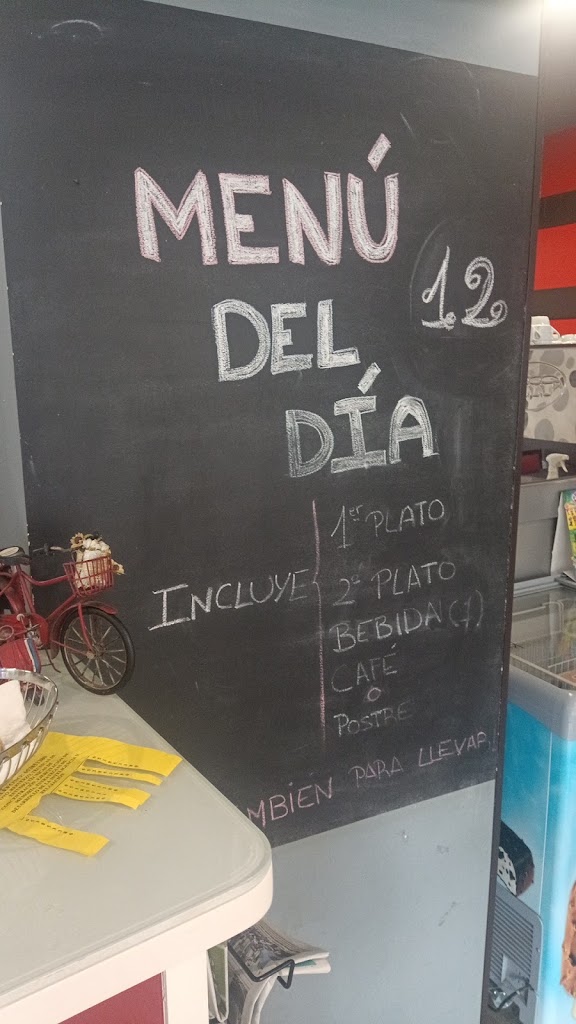 MENÚ
DEL
DÍA
12
INCLUYE
1er PLATO
2º PLATO
BEBIDA (1)
CAFÉ
O
POSTRE
MBIEN PARA LLEVAR